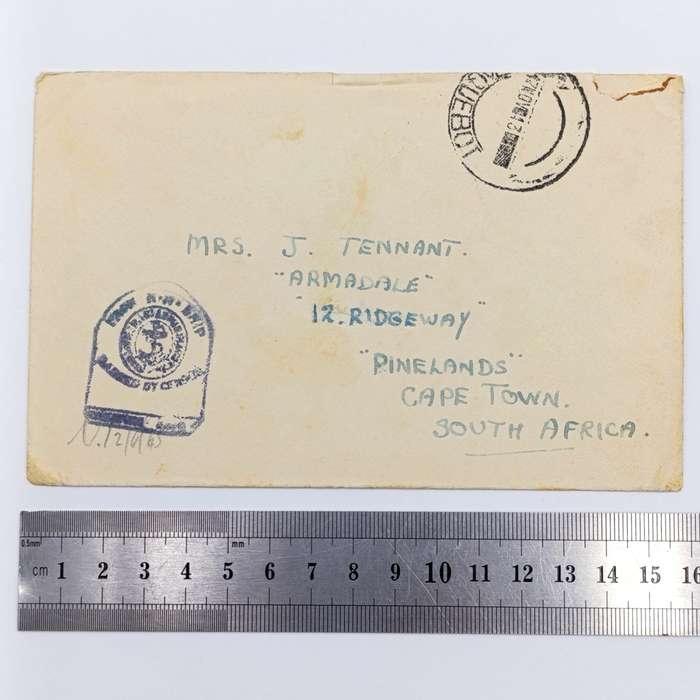 MRS. J. TENNANT.
"ARMADALE"
"12. RIDGEWAY"
"PINELANDS"
CAPE TOWN.
SOUTH AFRICA.
FROM H.M. SHIP
PASSED BY CENSOR
0.5mm mm
cm 1 2 3 4 5 6 7 8 9 10 11 12 13 14 15 16